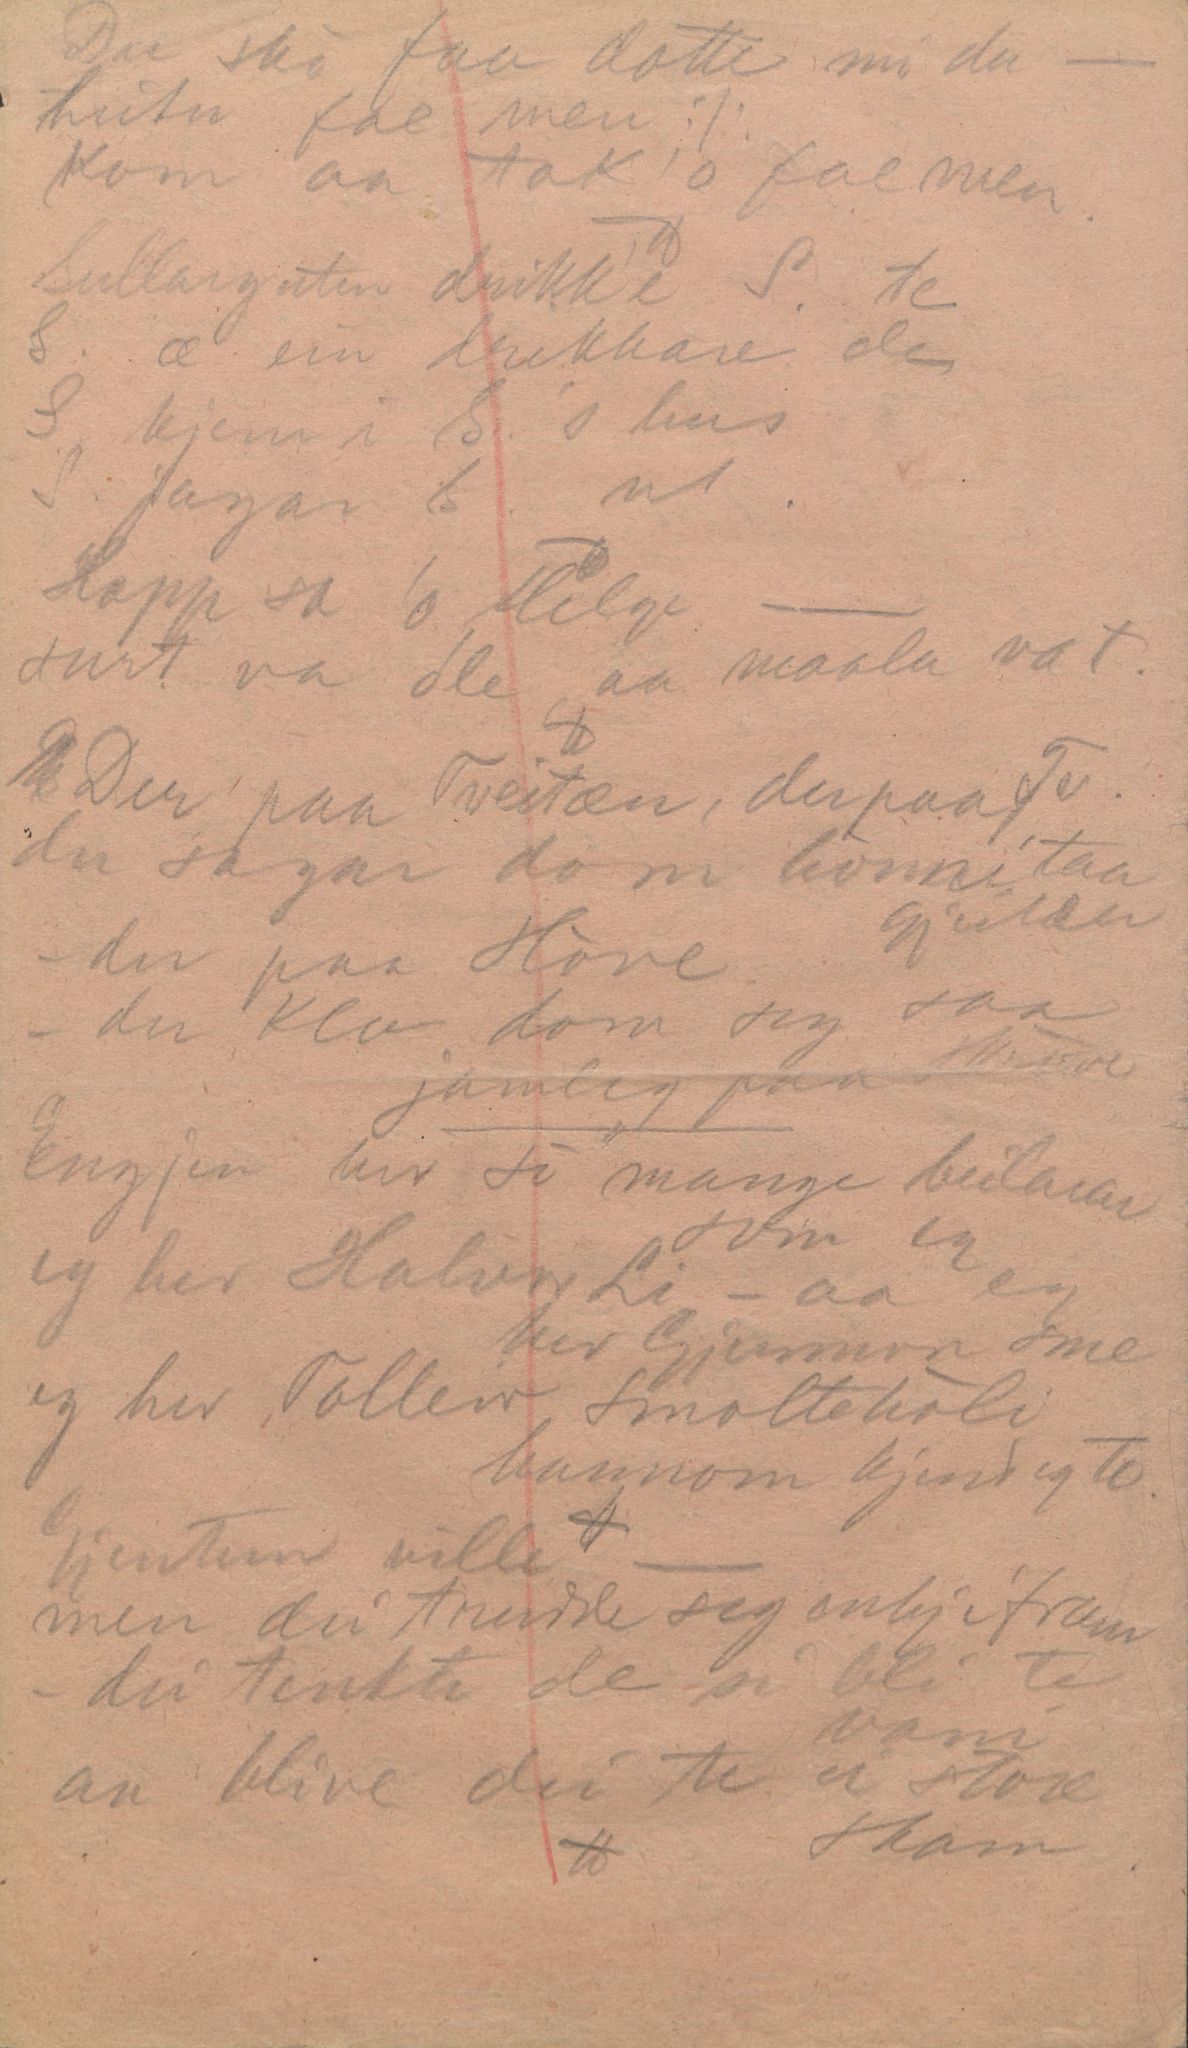 Du skò faa dòtte mi du —
huter fae men :/:
Kom aa tak 'o fae men.
Lullarguten drikk'e S. te
S. æ ein drukkare de
S. kjem i L.'s hus
S. jagar L. ut.
Hopp sa 'o Helge —
surt va òle aa maala vat.
Der paa Tveitæn, der paa Tv.
der jagar dom honni taa
Gjeitæn
- der paa Hòve
- der klo dom seg saa
jamleg paa
Engjen her sò mange beilarar
som eg
eg her Halvor Li - aa eg
her Gjermon Sme
eg her Tolleiv Smòltehòli
hannom kjens eg te.
Gjentun ville —
men dei trudde seg onkji fram
- dei tenkte de si bli te
vani
aa blive dei te ei store
skam.